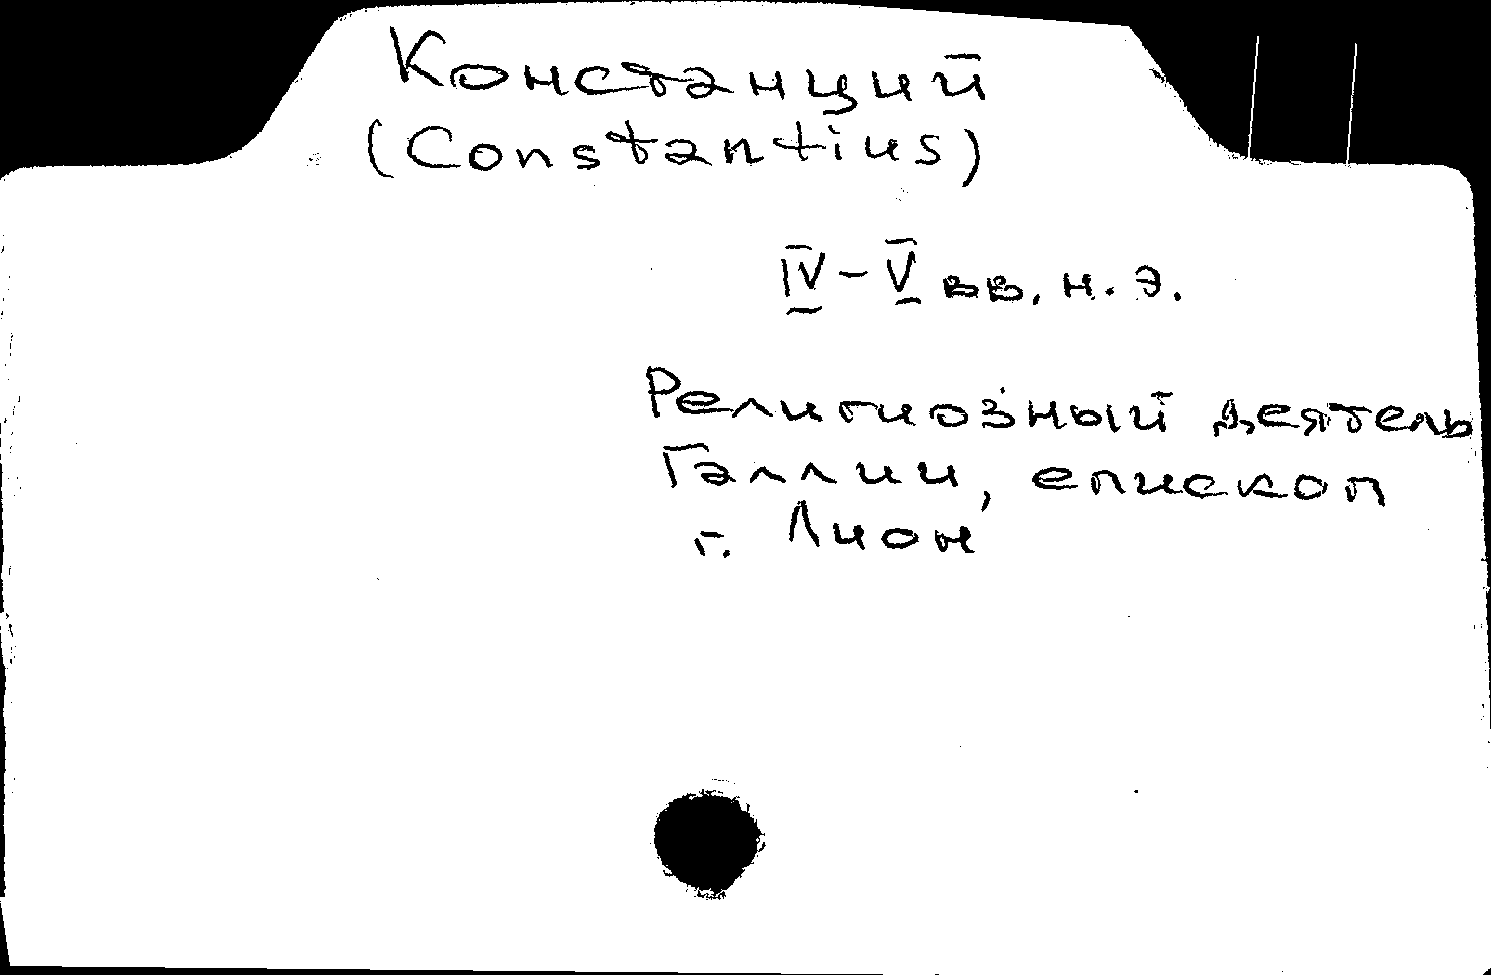 Констанций
(Constantius)
IV-V вв. н. э.
Религиозный деятель
Галлии, епископ
г. Лион